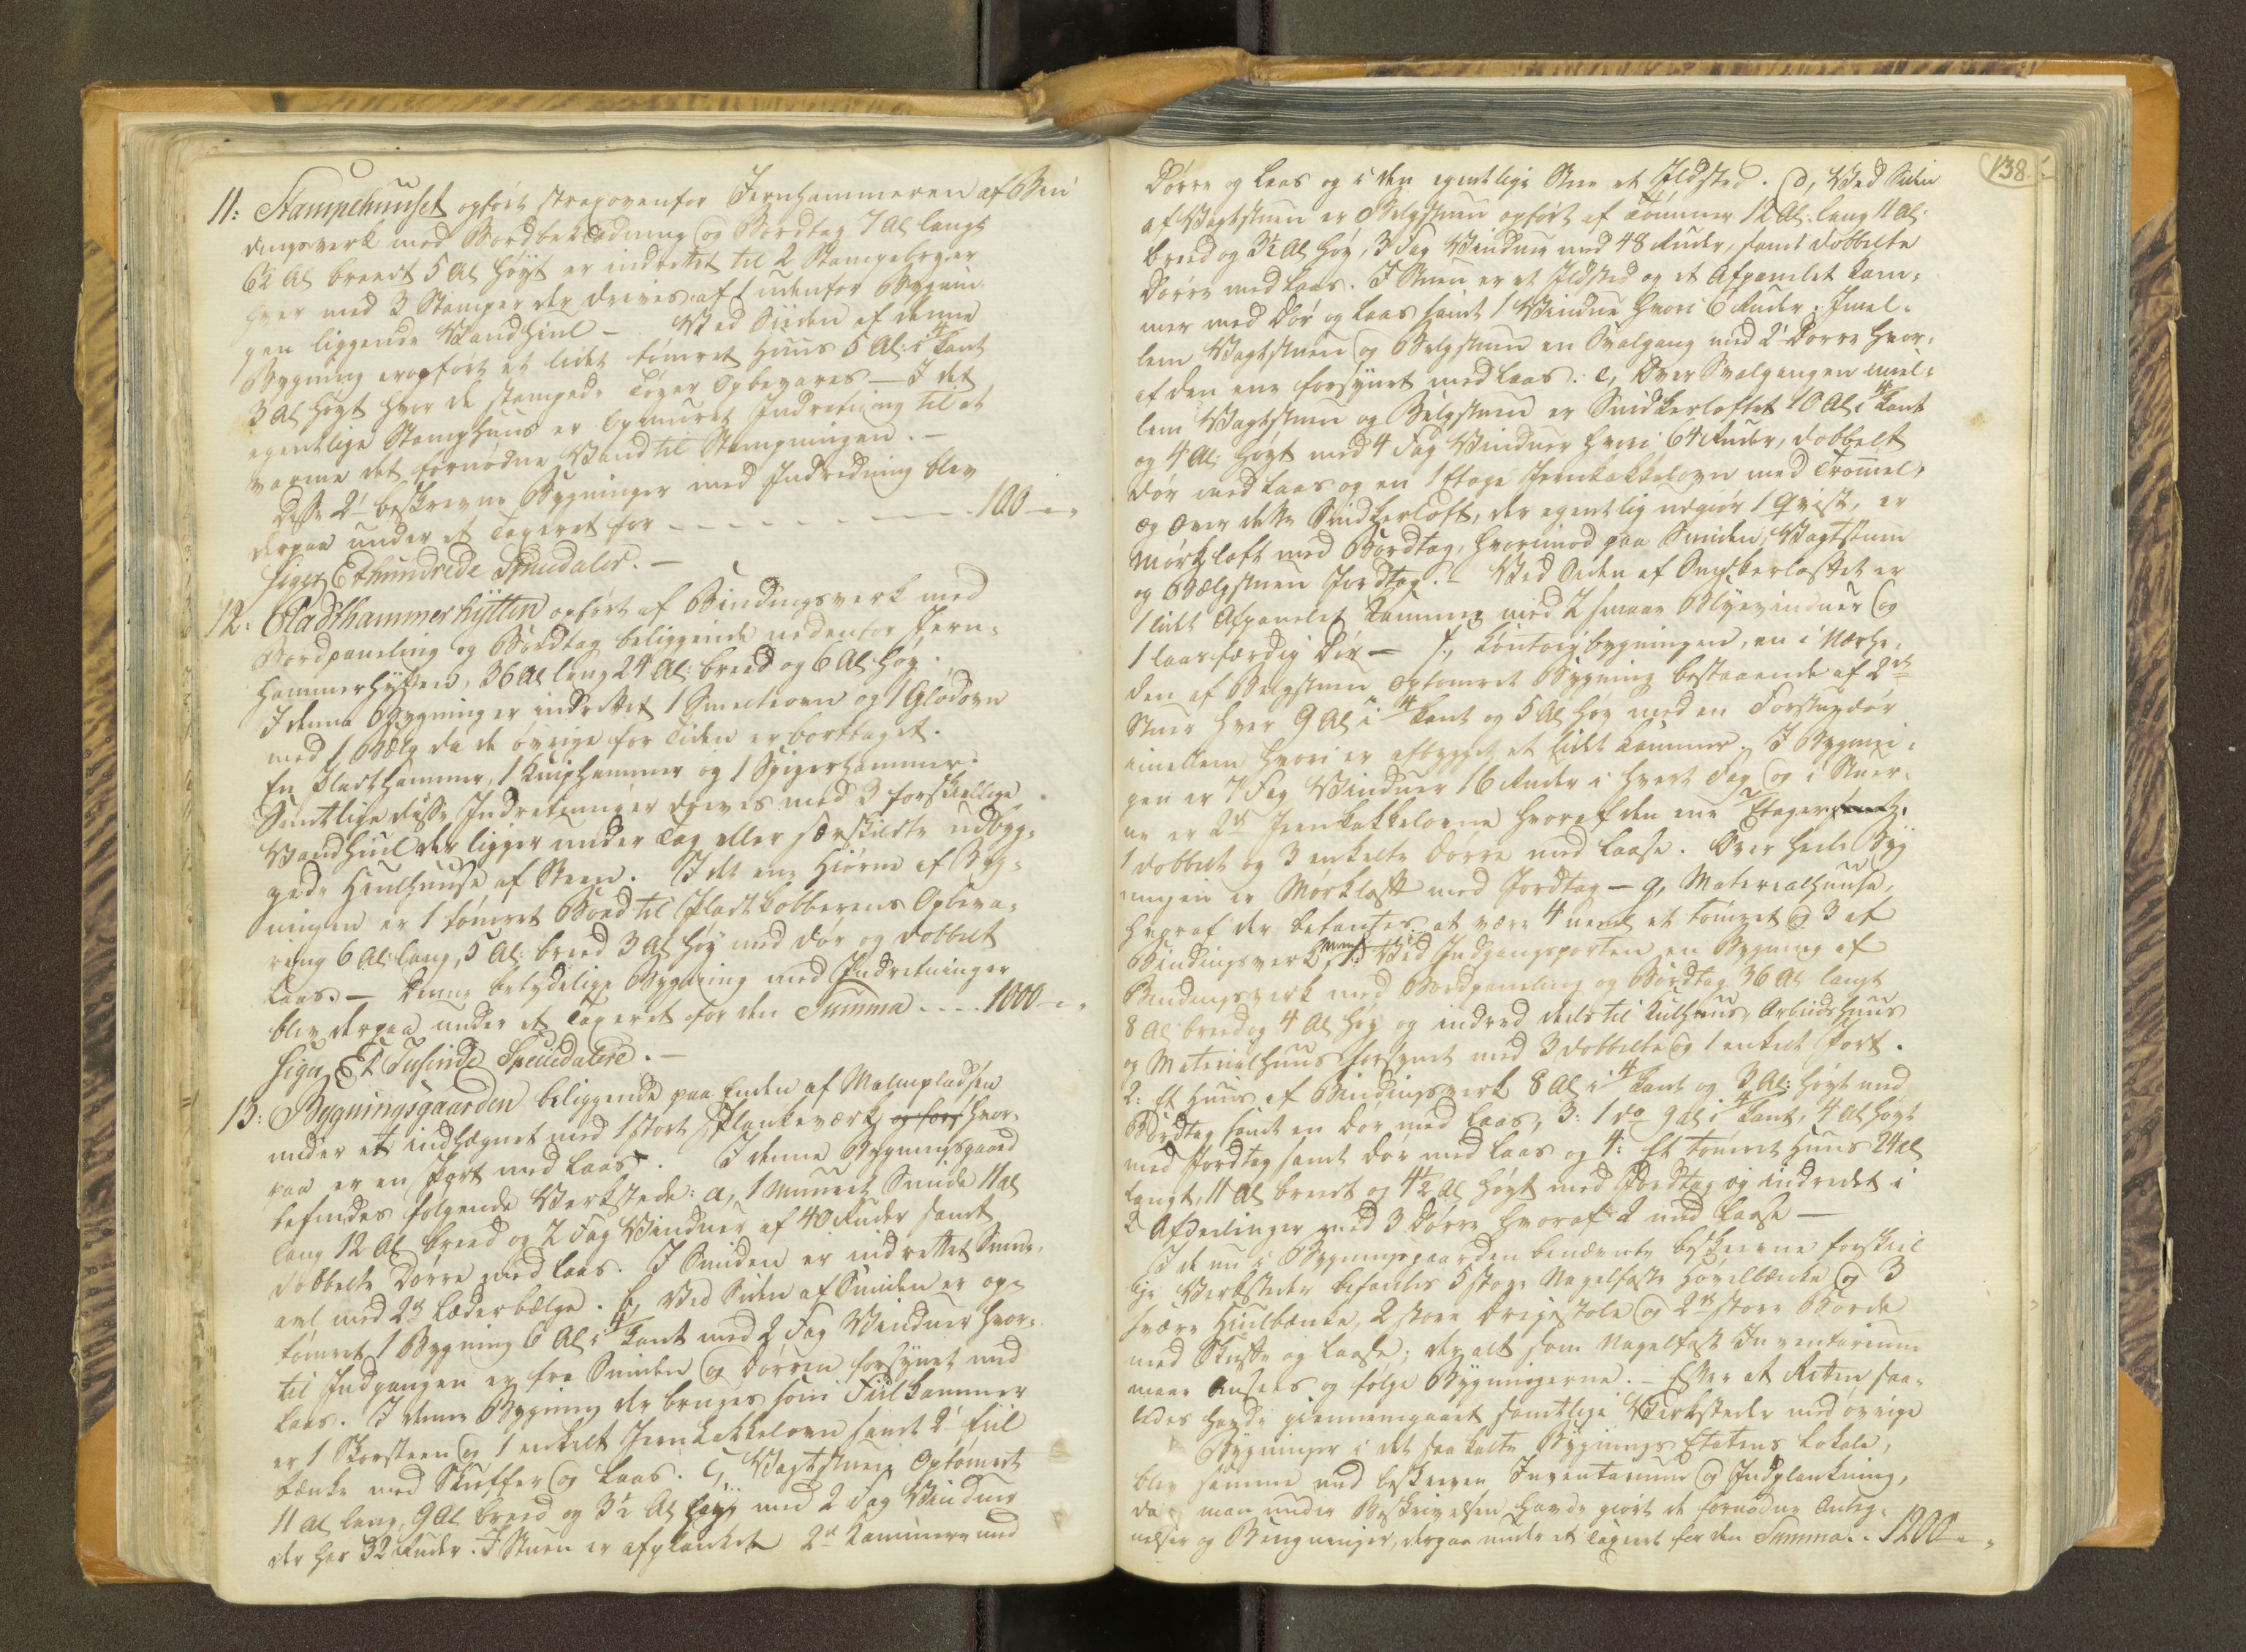 11: Stampehuuset opført strax ovenfor Jernhammeren af Bin
dingsverk med Bordbeklædning og Bordtag 7 Al langt
6½ Al breedt 5 Al høyt er indrettet til 2 Stampeloger
hver med 3 Stamper der drives af 1 udenfor Bygnin
gen liggende Vandhiul – Ved Siiden af denne
Bygning er opført et lidet tømret Huus 5 Al: i 4kant
3 Al høyt hvor de stampede Tøyer Opbevares – I det
egentlige Stamphuus er Opmuret Indretning til at
varme det fornødne Vand til Stampningen. –
Disse 2de beskrevne Bygninger med Indredning blev
derpaa under et Taxeret for – – – – – – – 100 – „
siger Ethundrede Speciedaler. –
12: Pladthammerhytten opført af Bindingsverk med
Bordpaneling og Bordtag beliggende nedenfor Jern-
hammerhytten, 36 Al lang 24 Al: breed og 6 Al høy.
I denne Bygning er indrettet 1 Smelteovn og 1 Glødovn
med 1 Bælg da de øvrige for Tiden er borttaget.
En Pladthammer, 1 Kniphammer og 1 Spigerhammer.
Samtlige disse Indretninger drives med 3 forskiellige
Vandhiul der ligger under Tag eller særskildte udbyg-
gede Hiulhuuse af Steen. I det ene Hiørne af Byg-
ningen er 1 tømret Boed til Pladtkobberens Opbeva-
ring 6 Al: lang, 5 Al: breed 3 Al høy med dør og dobbelt
Laas. – Denne betydelige Bygning med Indretninger
blev derpaa under et Taxeret for den Summa – – – 1000 – „
siger Et Tusinde Speciedalere. –
13: Bygningsgaarden beliggende paa Enden af Malmpladsen
under et indhægnet med 1 stort Plankeværk og for hvor-
paa er en Port med Laas. I denne Bygningsgaard
befindes følgende Verkstede: a, 1 Muuret Smide 11 Al
lang 12 Al breed og 2 Fag Vinduer af 40 Ruder samt
dobbelte Dørre med Laas. I Smiden er indrettet Smede-
avl med 2de Læderbælge. b, Ved Siden af Smiden er op-
tømret 1 Bygning 6 Al i 4kant med 2 Fag Vinduer hvor-
til Indgangen er fra Smiden og Dørren forsynet med
Laas. I denne Bygning der bruges som Fiilkammer
er 1 Skorsteen og 1 enkelt Jernkakkelovn samt 2de Fiil
bænke med Skuffer og Laas. c, Vagtstuen Optømret
11 Al lang, 9 Al breed og 3½ Al høy med 2 Fag Vinduer
der har 32 Ruder. I Stuen er afplanket 2de Kammere med
138
Dørre og Laas og i den egentlige Stue et Ildsted. d, Ved Siden
af Vagtstuen er Bælgstuen opført af Tømmer 12 Al: lang 11 Al:
breed og 3½ Al høy, 3 Fag Vinduer med 48 Ruder, samt dobbelte
Dørre med Laas. I Stuen er et Ildsted og et Afpanelet Kam-
mer med Dør og Laas samt 1 Vindue hvori 6 Ruder: Imel-
lem Vagtstuen og Bælgstuen en Svalgang med 2de Dørre hvor-
af den ene forsynet med Laas: e, Over Svalgangen imel-
lem Vagtstuen og Bælgstuen er Snidkerloftet 10 Al i 4kant
og 4 Al: høyt med 4 Fag Vinduer hvori 64 Ruder, dobbelt
dør med Laas og en 1 Etage Jernkakkelovn med Trommel,
og over dette Snidkerloft, der egentlig udgiør 1 Qvist, er
Mørkloft med Bordtag, hvorimod paa Smiden, Vagtstuen
og Bælgstuen Jordtag. – Ved Siden af Snidkerloftet er
1 lidet Afpanelet Kammer med 2 smaae Blyevinduer og
1 laasfærdig Dør – f, Contoirbygningen, en i Nærhe-
den af Bælgstuen Optømret Bygning bestaaende af 2de
Stuer hver 9 Al i 4kant og 5 Al høy med en Forstuedør
imellem hvori er afbygget et lidet Kammer. I Bygnin-
gen er 7 Fag Vinduer 16 Ruder i hvert Fag og i Stuer-
ne er 2de Jernkakkelovne hvoraf den ene 2 Etager samt
1 dobbelt og 3 enkelte Dørre med Laase. Over heele Byg
ningen er Mørkloft med Jordtag – g, Materialhuuse,
hvoraf der befantes at være 4 nemlig et tømret og 3 af
Bindingsverk, 1: Ved Indgangsporten en Bygning af
Bindingsverk med Bordpaneling og Bordtag 36 Al langt
8 Al breed og 4 Al høy og indred deels til Kulhuus, Arbeidshuus
og Materialhuus forsynet med 3 dobbelte og 1 enkelt Port.
2: Et Huus af Bindingsverk 8 Al i 4kant og 3 Al: høyt med
Bordtag samt en dør med Laas, 3: 1 do 9 Al i 4kant, 4 Al høyt
med Jordtag samt dør med Laas og 4: Et tømret Huus 24 Al
langt, 11 Al breedt og 4½ Al høyt med Jordtag og indredet i
2 Afdeilinger med 3 Dørre hvoraf 2 med Laase –
I de nu i Bygningsgaarden benævnte beskrevne forskiel
lige Verksteder befantes 5 store Nagelfaste Høvelbænke og 3
svære Hiulbænke, 2 store Dreiestole og 2de store Borde
med Skuffe og Laase; der alt som Nagelfast Inventarium
maae Ansees og følge Bygningerne. – Efter at Retten saa-
ledes havde giennemgaaet samtlige Verksteder med øvrige
Bygninger i det saa kaldte Bygnings Etatens Lokale,
blev samme med beskreven Inventarium og Indplankning,
da man under Beskrivelsen havde giort de fornødne Anteg-
nelser og Beregninger, derpaa under et Taxeret for den Summa . . 1200 – „